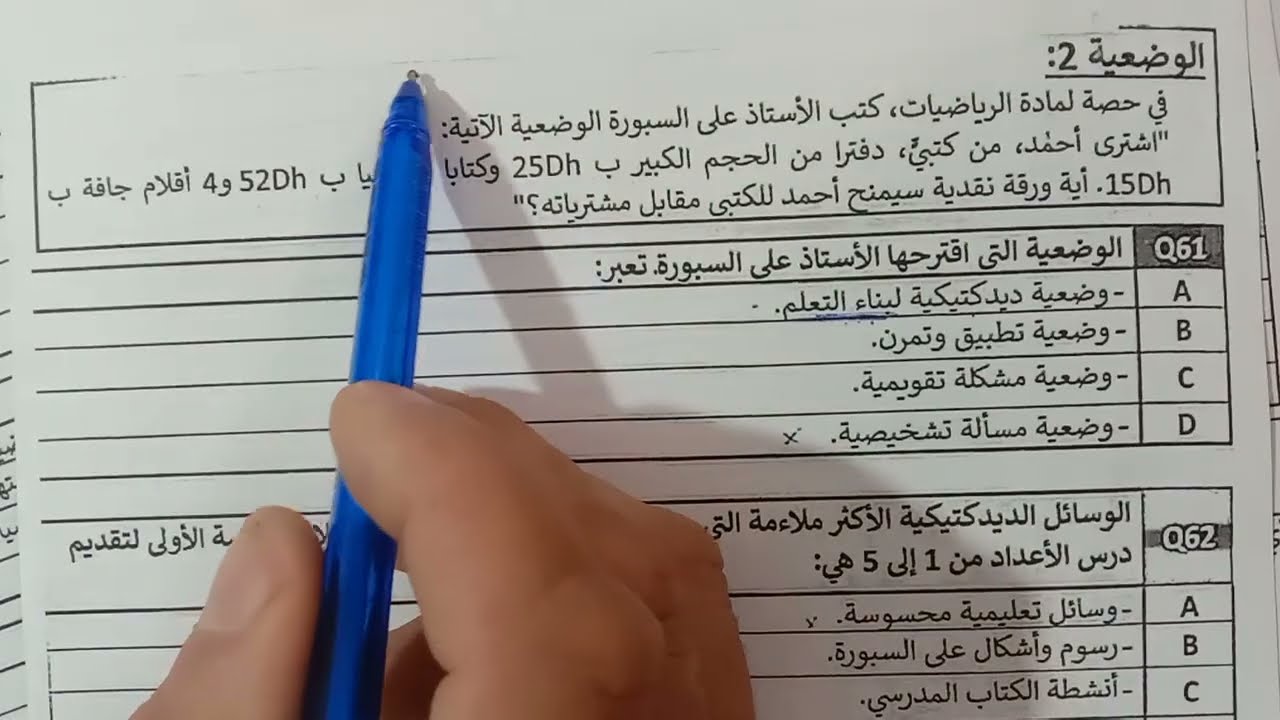 الوضعية 2:
في حصة لمادة الرياضيات، كتب الأستاذ على السبورة الوضعية الآتية:
"اشترى أحمد، من كتبيٍّ، دفترا من الحجم الكبير ب 25Dh وكتابا ب 52Dh و4 أقلام جافة ب
15Dh. أية ورقة نقدية سيمنح أحمد للكتبي مقابل مشترياته؟"
Q61 الوضعية التي اقترحها الأستاذ على السبورة تعبر:
A -وضعية ديدكتيكية لبناء التعلم.
B -وضعية تطبيق وتمرن.
C -وضعية مشكلة تقويمية.
D -وضعية مسألة تشخيصية. x
Q62 الوسائل الديدكتيكية الأكثر ملاءمة التي الأولى لتقديم
درس الأعداد من 1 إلى 5 هي:
A -وسائل تعليمية محسوسة. x
B -رسوم وأشكال على السبورة.
C -أنشطة الكتاب المدرسي.